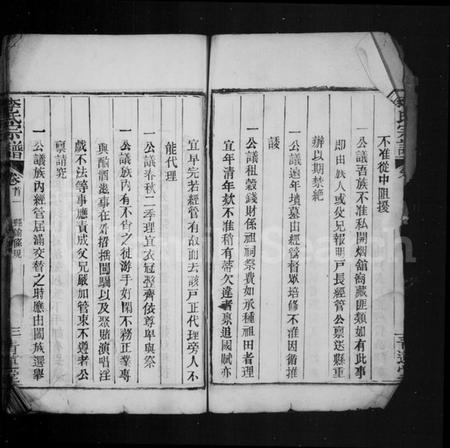 不准從中阻援
一公議吾族不准私開烟舘窩藏匪類如有此事
即由族人或父兄報明戸長經管公稟送縣重
辦以期禁絶
一公議遠年墳墓由經管督眾培修不准因循推
諉
一公議租穀錢財係祖祠祭費如承種祖田者理
宜年清年欵不准稍有蒂欠違者稟追國賦亦
宜早完若經管有故而去該戸正代理旁人不
能代理
一公議春秋二季理宜衣冠齊依尊卑與祭
一公議族內有不肖之徒游手好閒不務正業專
與酗酒滋事在外招搖闖以及聚賭演唱淫
戯不法等事應責成父兄嚴加管束不遵者公
稟請究
一公議族內經管屆滿交替之時應由闔族選舉
李氏宗譜
卷首
三
氏宗譜